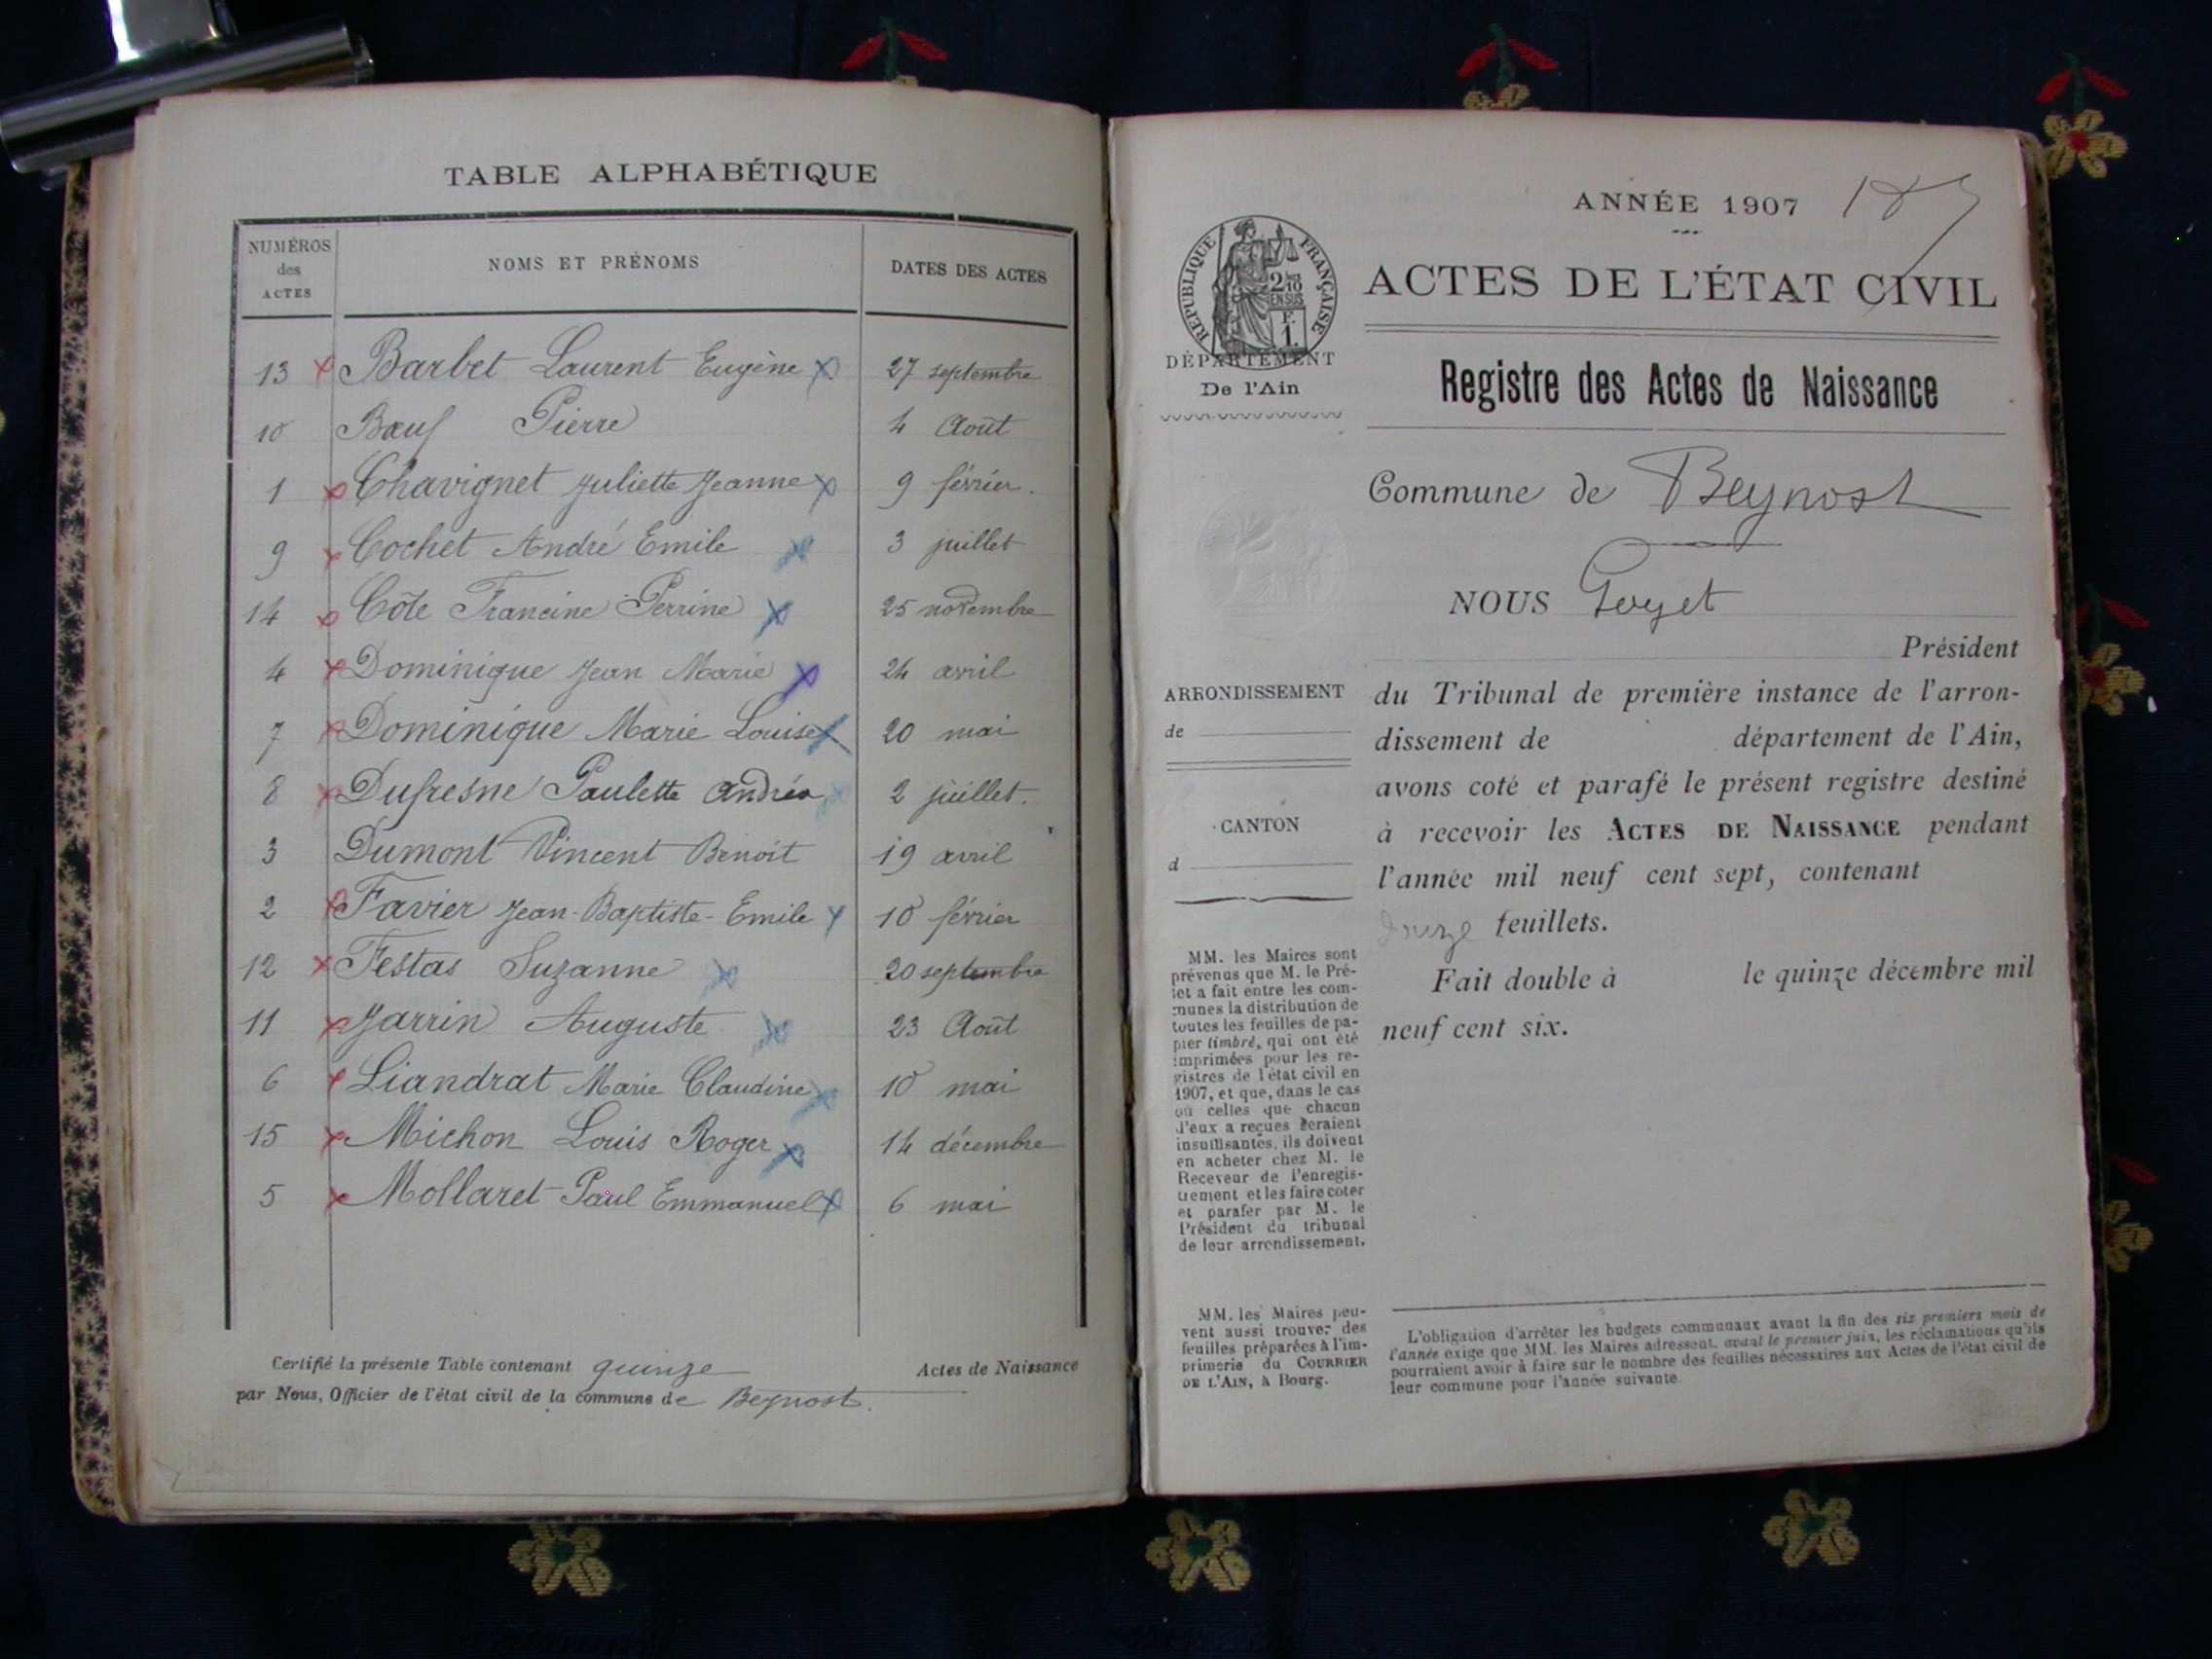 TABLE ALPHABÉTIQUE
NUMÉROS des ACTES NOMS ET PRÉNOMS DATES DES ACTES
13 Barbet Laurent Eugène 27 septembre
10 Bœuf Pierre 4 Août
1 Chavignet Juliette Jeanne 9 février.
9 Cochet André Emile 3 juillet
14 Côte Francine Perrine 25 novembre
4 Dominique Jean Marie 24 avril
7 Dominique Marie Louise 20 mai
8 Dufresne Paulette Andréa 2 juillet.
3 Dumont Vincent Benoit 19 avril
2 Favier Jean-Baptiste-Emile 10 février
12 Festas Suzanne 20 septembre
11 Jarrin Auguste 23 Août
6 Liandrat Marie Claudine 10 mai
15 Michon Louis Roger 14 décembre
5 Mollaret Paul Emmanuel 6 mai
Certifié la présente Table contenant quinze Actes de Naissance
par Nous, Officier de l'état civil de la commune de Beynost.
ANNÉE 1907
RÉPUBLIQUE FRANÇAISE
2/10
EN SUS
F.
1.
ACTES DE L'ÉTAT CIVIL
DÉPARTEMENT
De l'Ain
Registre des Actes de Naissance
Commune de Beynost
NOUS
Président
ARRONDISSEMENT
de
CANTON
d
du Tribunal de première instance de l'arron-
dissement de département de l'Ain,
avons coté et parafé le présent registre destiné
à recevoir les ACTES DE NAISSANCE pendant
l'année mil neuf cent sept, contenant
feuillets.
Fait double à le quinze décembre mil
neuf cent six.
MM. les Maires sont
prévenus que M. le Pré-
fet a fait entre les com-
munes la distribution de
toutes les feuilles de pa-
pier timbré, qui ont été
imprimées pour les re-
gistres de l'état civil en
1907, et que, dans le cas
où celles que chacun
d'eux a reçues seraient
insuffisantes, ils doivent
en acheter chez M. le
Receveur de l'enregis-
trement et les faire coter
et parafer par M. le
Président du tribunal
de leur arrondissement.
MM. les Maires peu-
vent aussi trouver des
feuilles préparées à l'im-
primerie du COURRIER
DE L'AIN, à Bourg.
L'obligation d'arrêter les budgets communaux avant la fin des six premiers mois de
l'année exige que MM. les Maires adressent, avant le premier juin, les réclamations qu'ils
pourraient avoir à faire sur le nombre des feuilles nécessaires aux Actes de l'état civil de
leur commune pour l'année suivante.